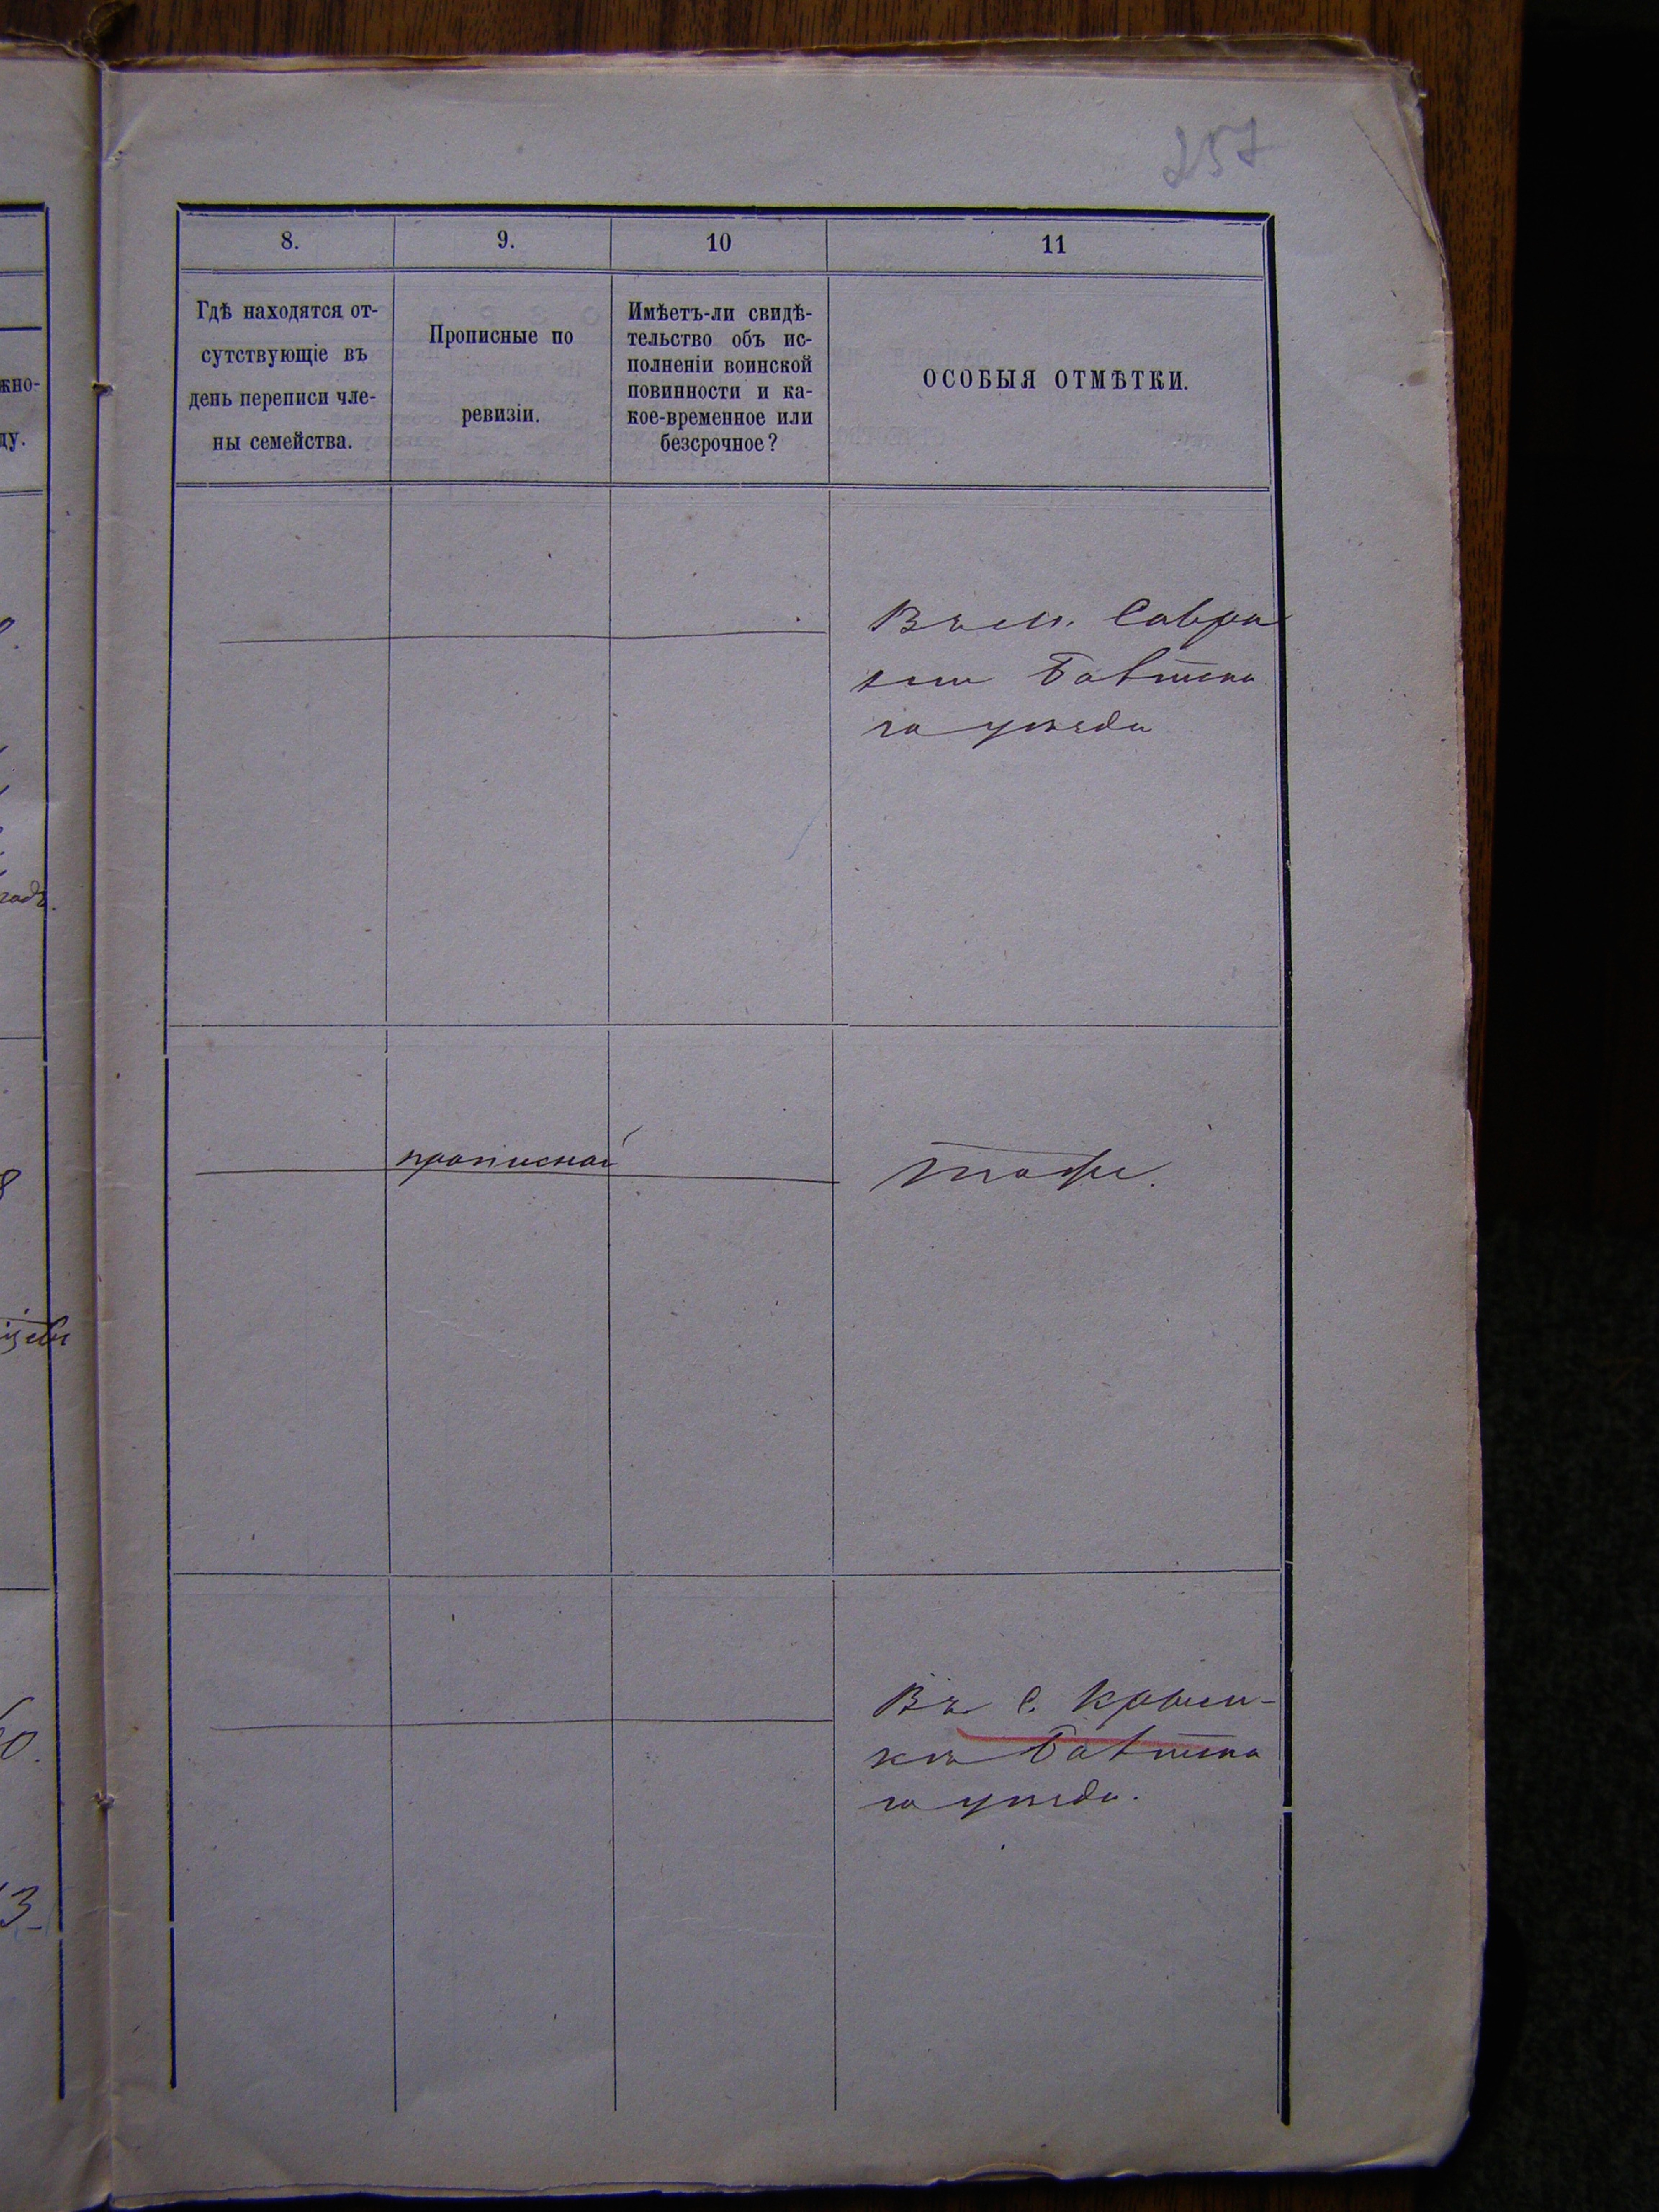 257
8.
9.
10
11
Гдѣ находятся от-
сутствующіе въ
день переписи чле-
ны семейства.
Прописные по
ревизіи.
Имѣетъ-ли свидѣ-
тельство объ ис-
полненіи воинской
повинности и ка-
кое-временное или
безсрочное?
ОСОБЫЯ ОТМѢТКИ.
жно-
ду.
Въ м. Савра
ни Балтска
го уѣзда
прописной
тоже.
Въ с. Крым-
кѣ Балтска
го уѣзда.